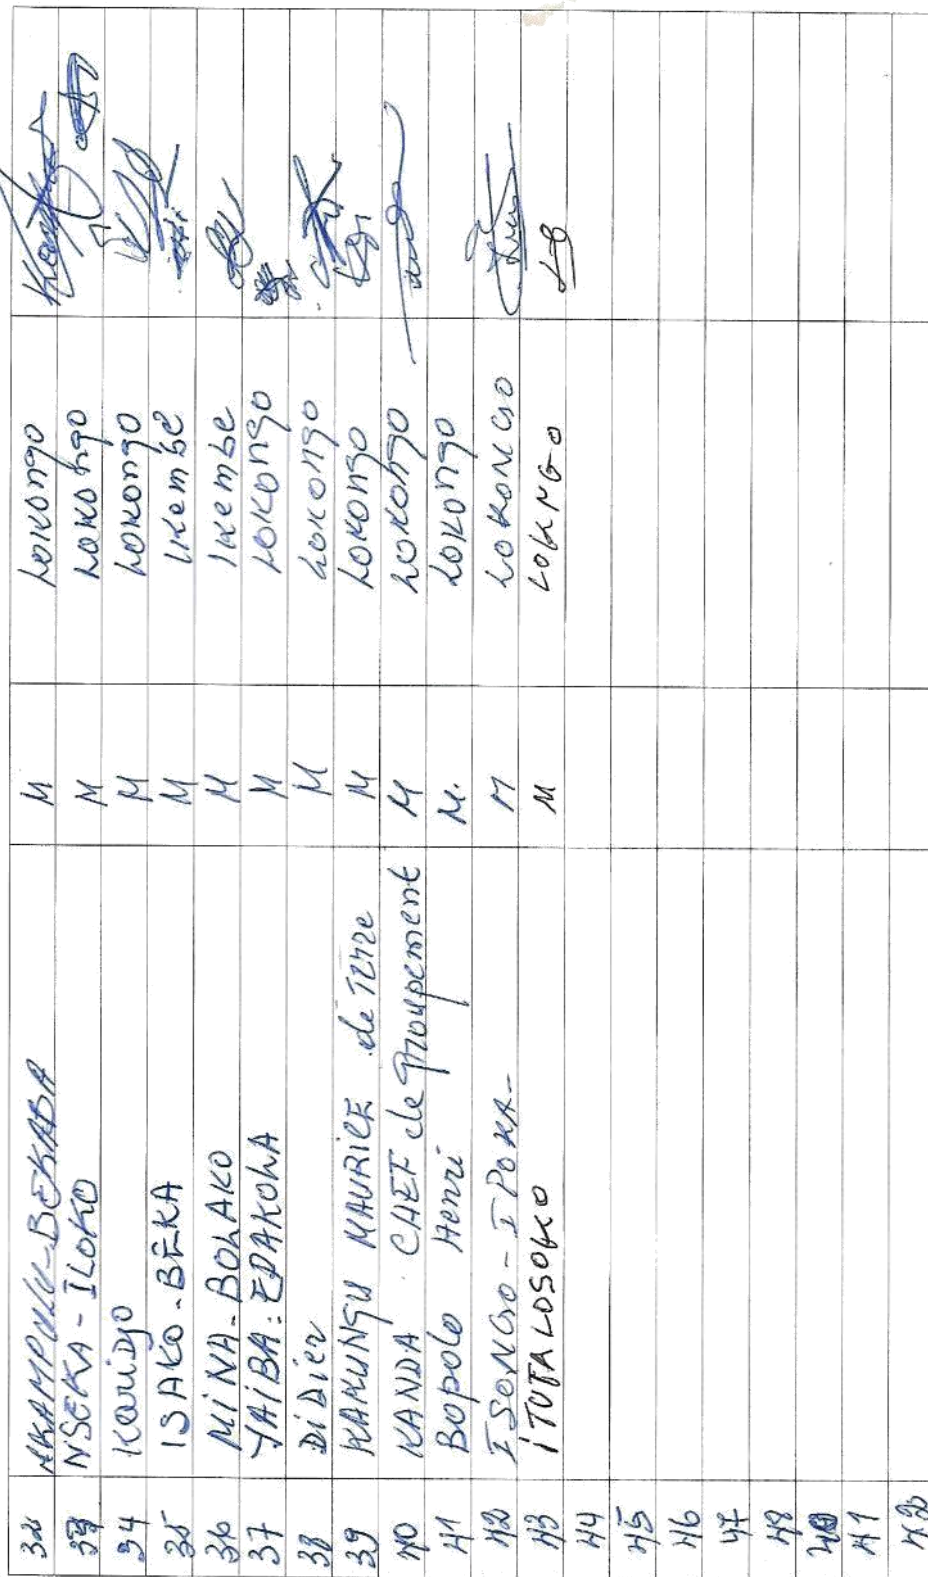 32 AKAMPULU-BEKABA M Lokongo
33 NSEKA - ILOKO M Lokongo
34 Karidjo M Lokongo
35 ISAKO-BEKA M Ikembe
36 MINA-BOLAKO M Ikembe
37 YAIBA-EDAKOLA M LOKONGO
38 DiDier M Lokongo
39 KAKUNGU MAURICE de Terre M LOKONGO
40 KANDA CHEF de Groupement M LOKONGO
41 Bopolo Henri M. LOKONGO
42 ISONGO-IPOKA- M LOKONGO
43 iTUTALOSOKO M LOKNGO
44
45
46
47
48
40
41
42